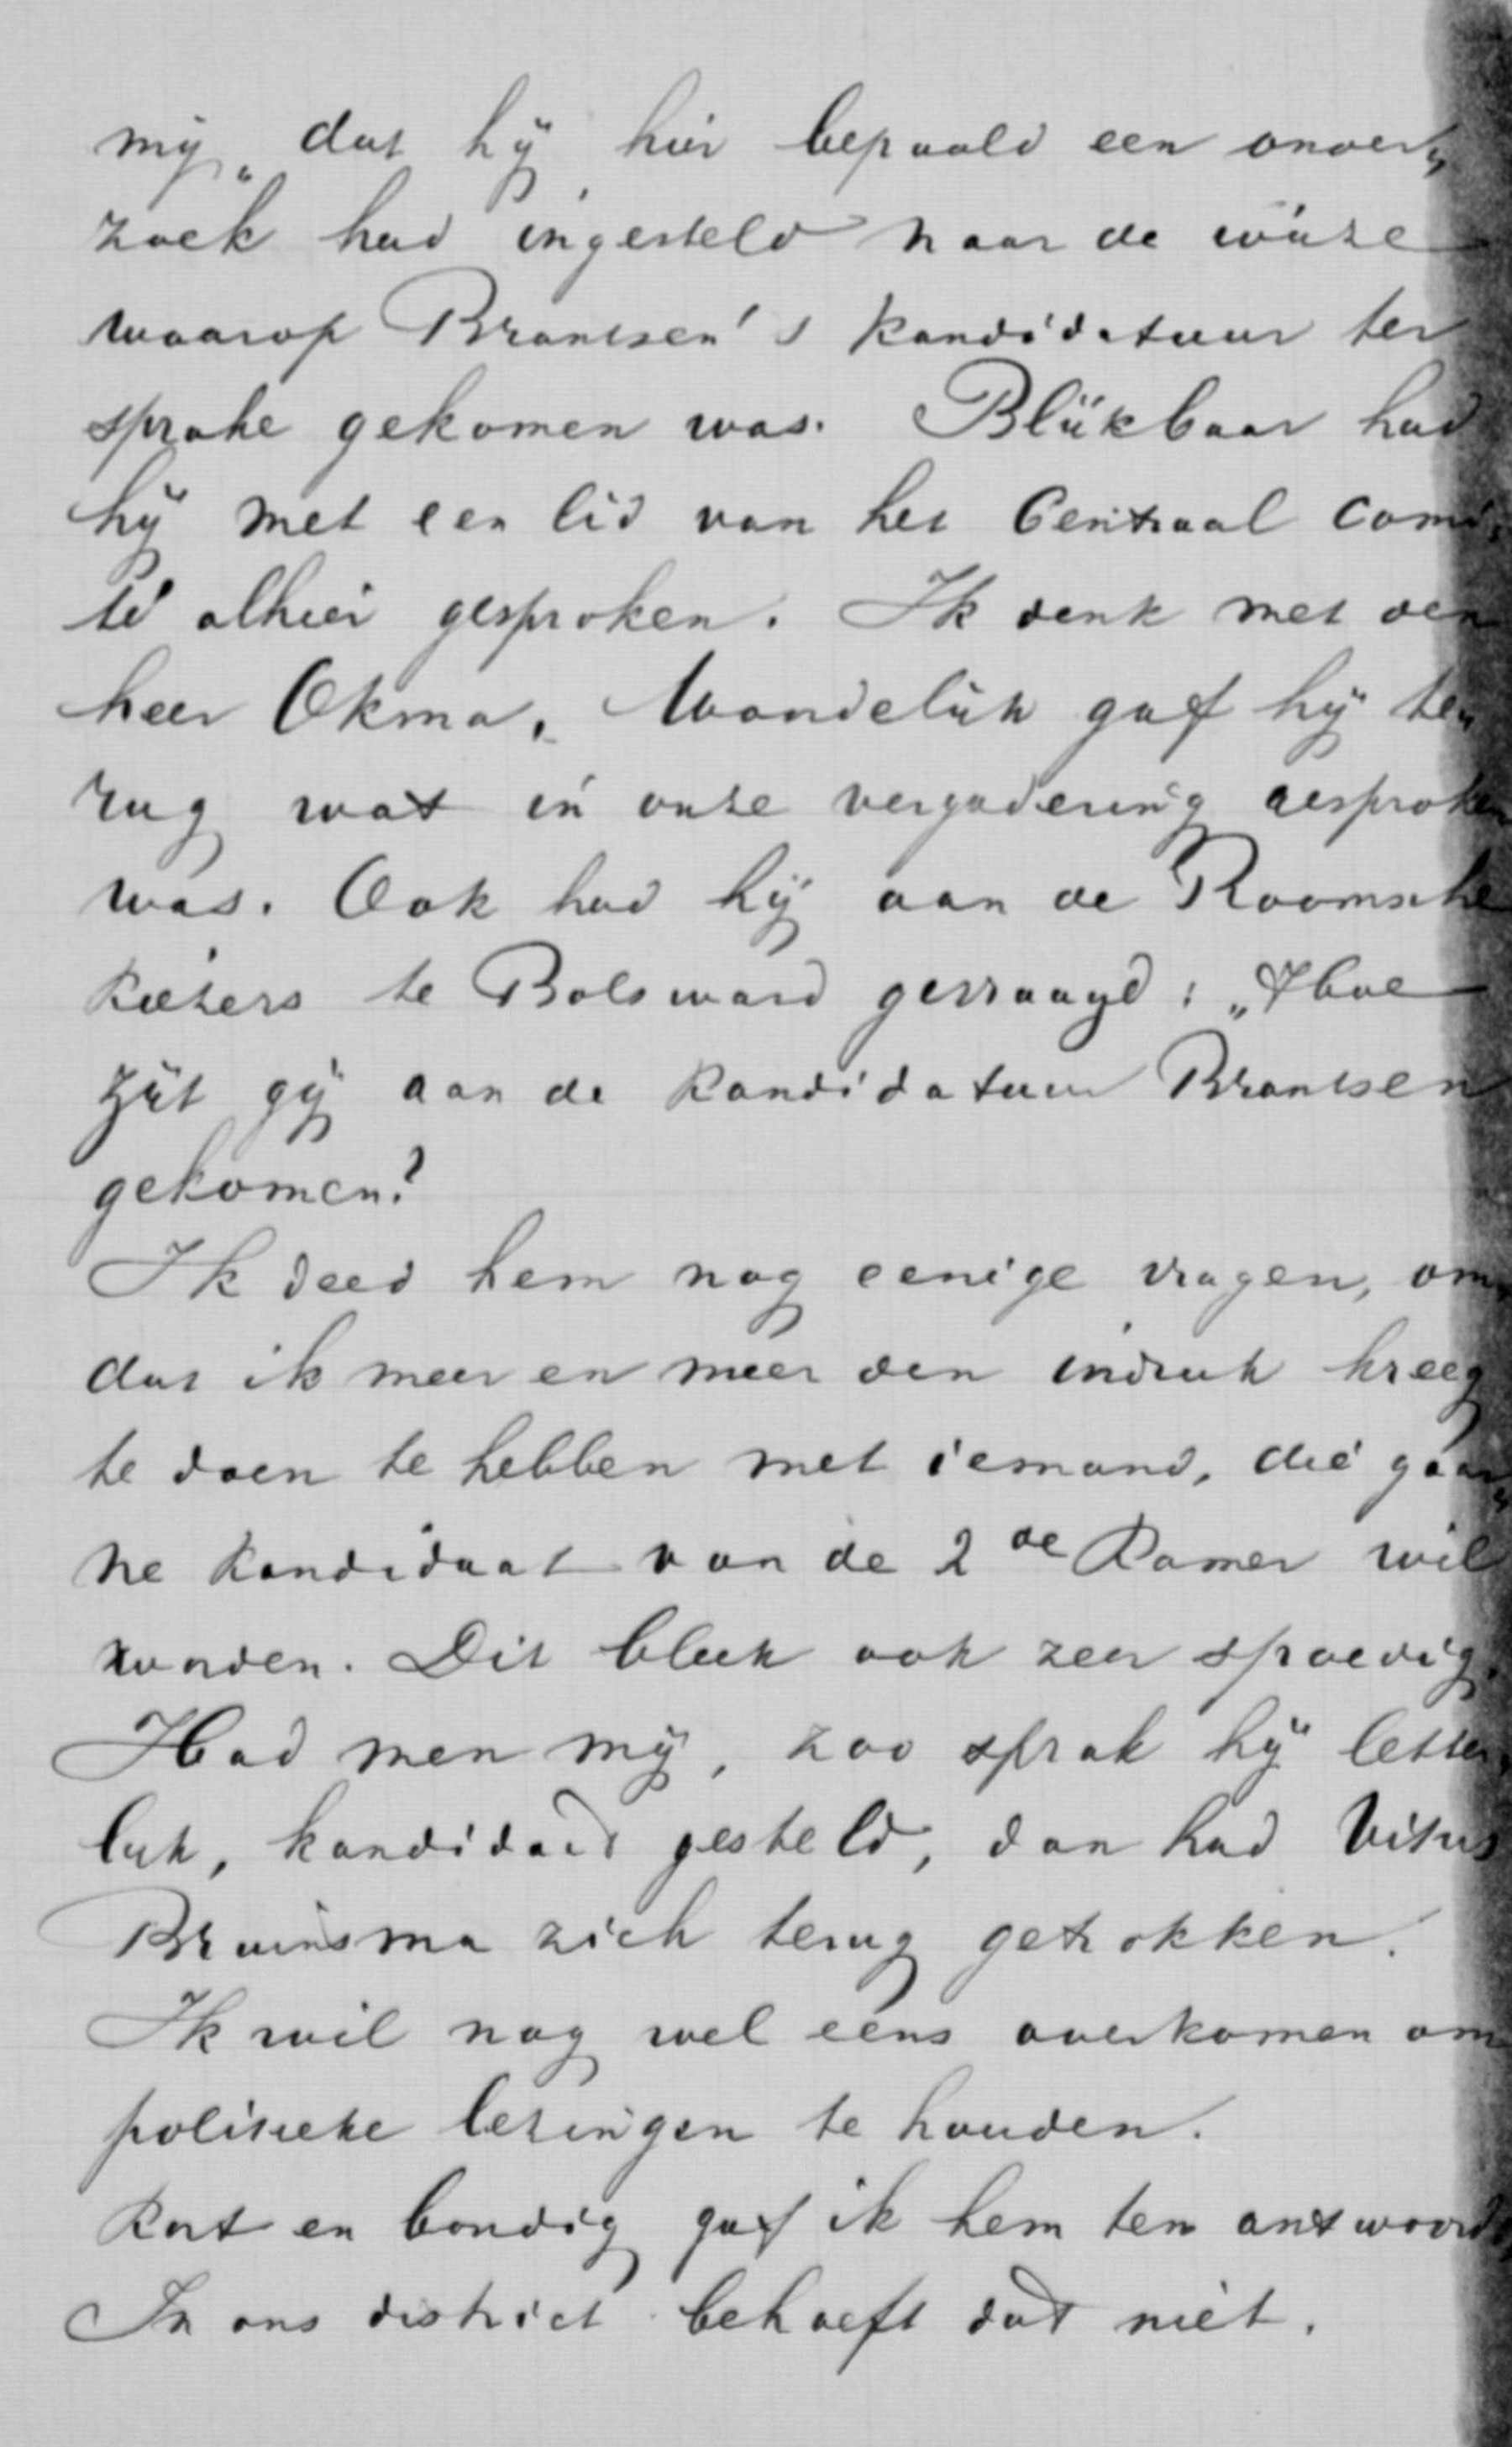 mij „ dat hij hier bepaald een onder„
zoek had ingesteld naar de wijze
waarop Brantsen's kandidatuur ter
sprake gekomen was. Blijkbaar had
hij met een lid van het Centraal Comi„
té alhier gesproken. Ik denk met den
heer Okma. Woordelijk gaf hij te„
rug wat in onze vergadering gesproken
was. Ook had hij aan de Roomsche
kiezers te Bolsward gevraagd: „Hoe
zijt gij aan de kandidatuur Brantsen
gekomen?
Ik deed hem nog eenige vragen, om
dat ik meer en meer den indruk kreeg
te doen te hebben met iemand, die gaar„
ne kandidaat van de 2de Kamer wil
worden. Dit bleek ook zeer spoedig.
Had men mij, zoo sprak hij letter„
lijk, kandidaat gesteld, dan had Vitus
Bruinsma zich terug getrokken.
Ik wil nog wel eens overkomen om
politieke lezingen te houden.
Kort en bondig gaf ik hem ten antwoord,
In ons district behoeft dat niet.